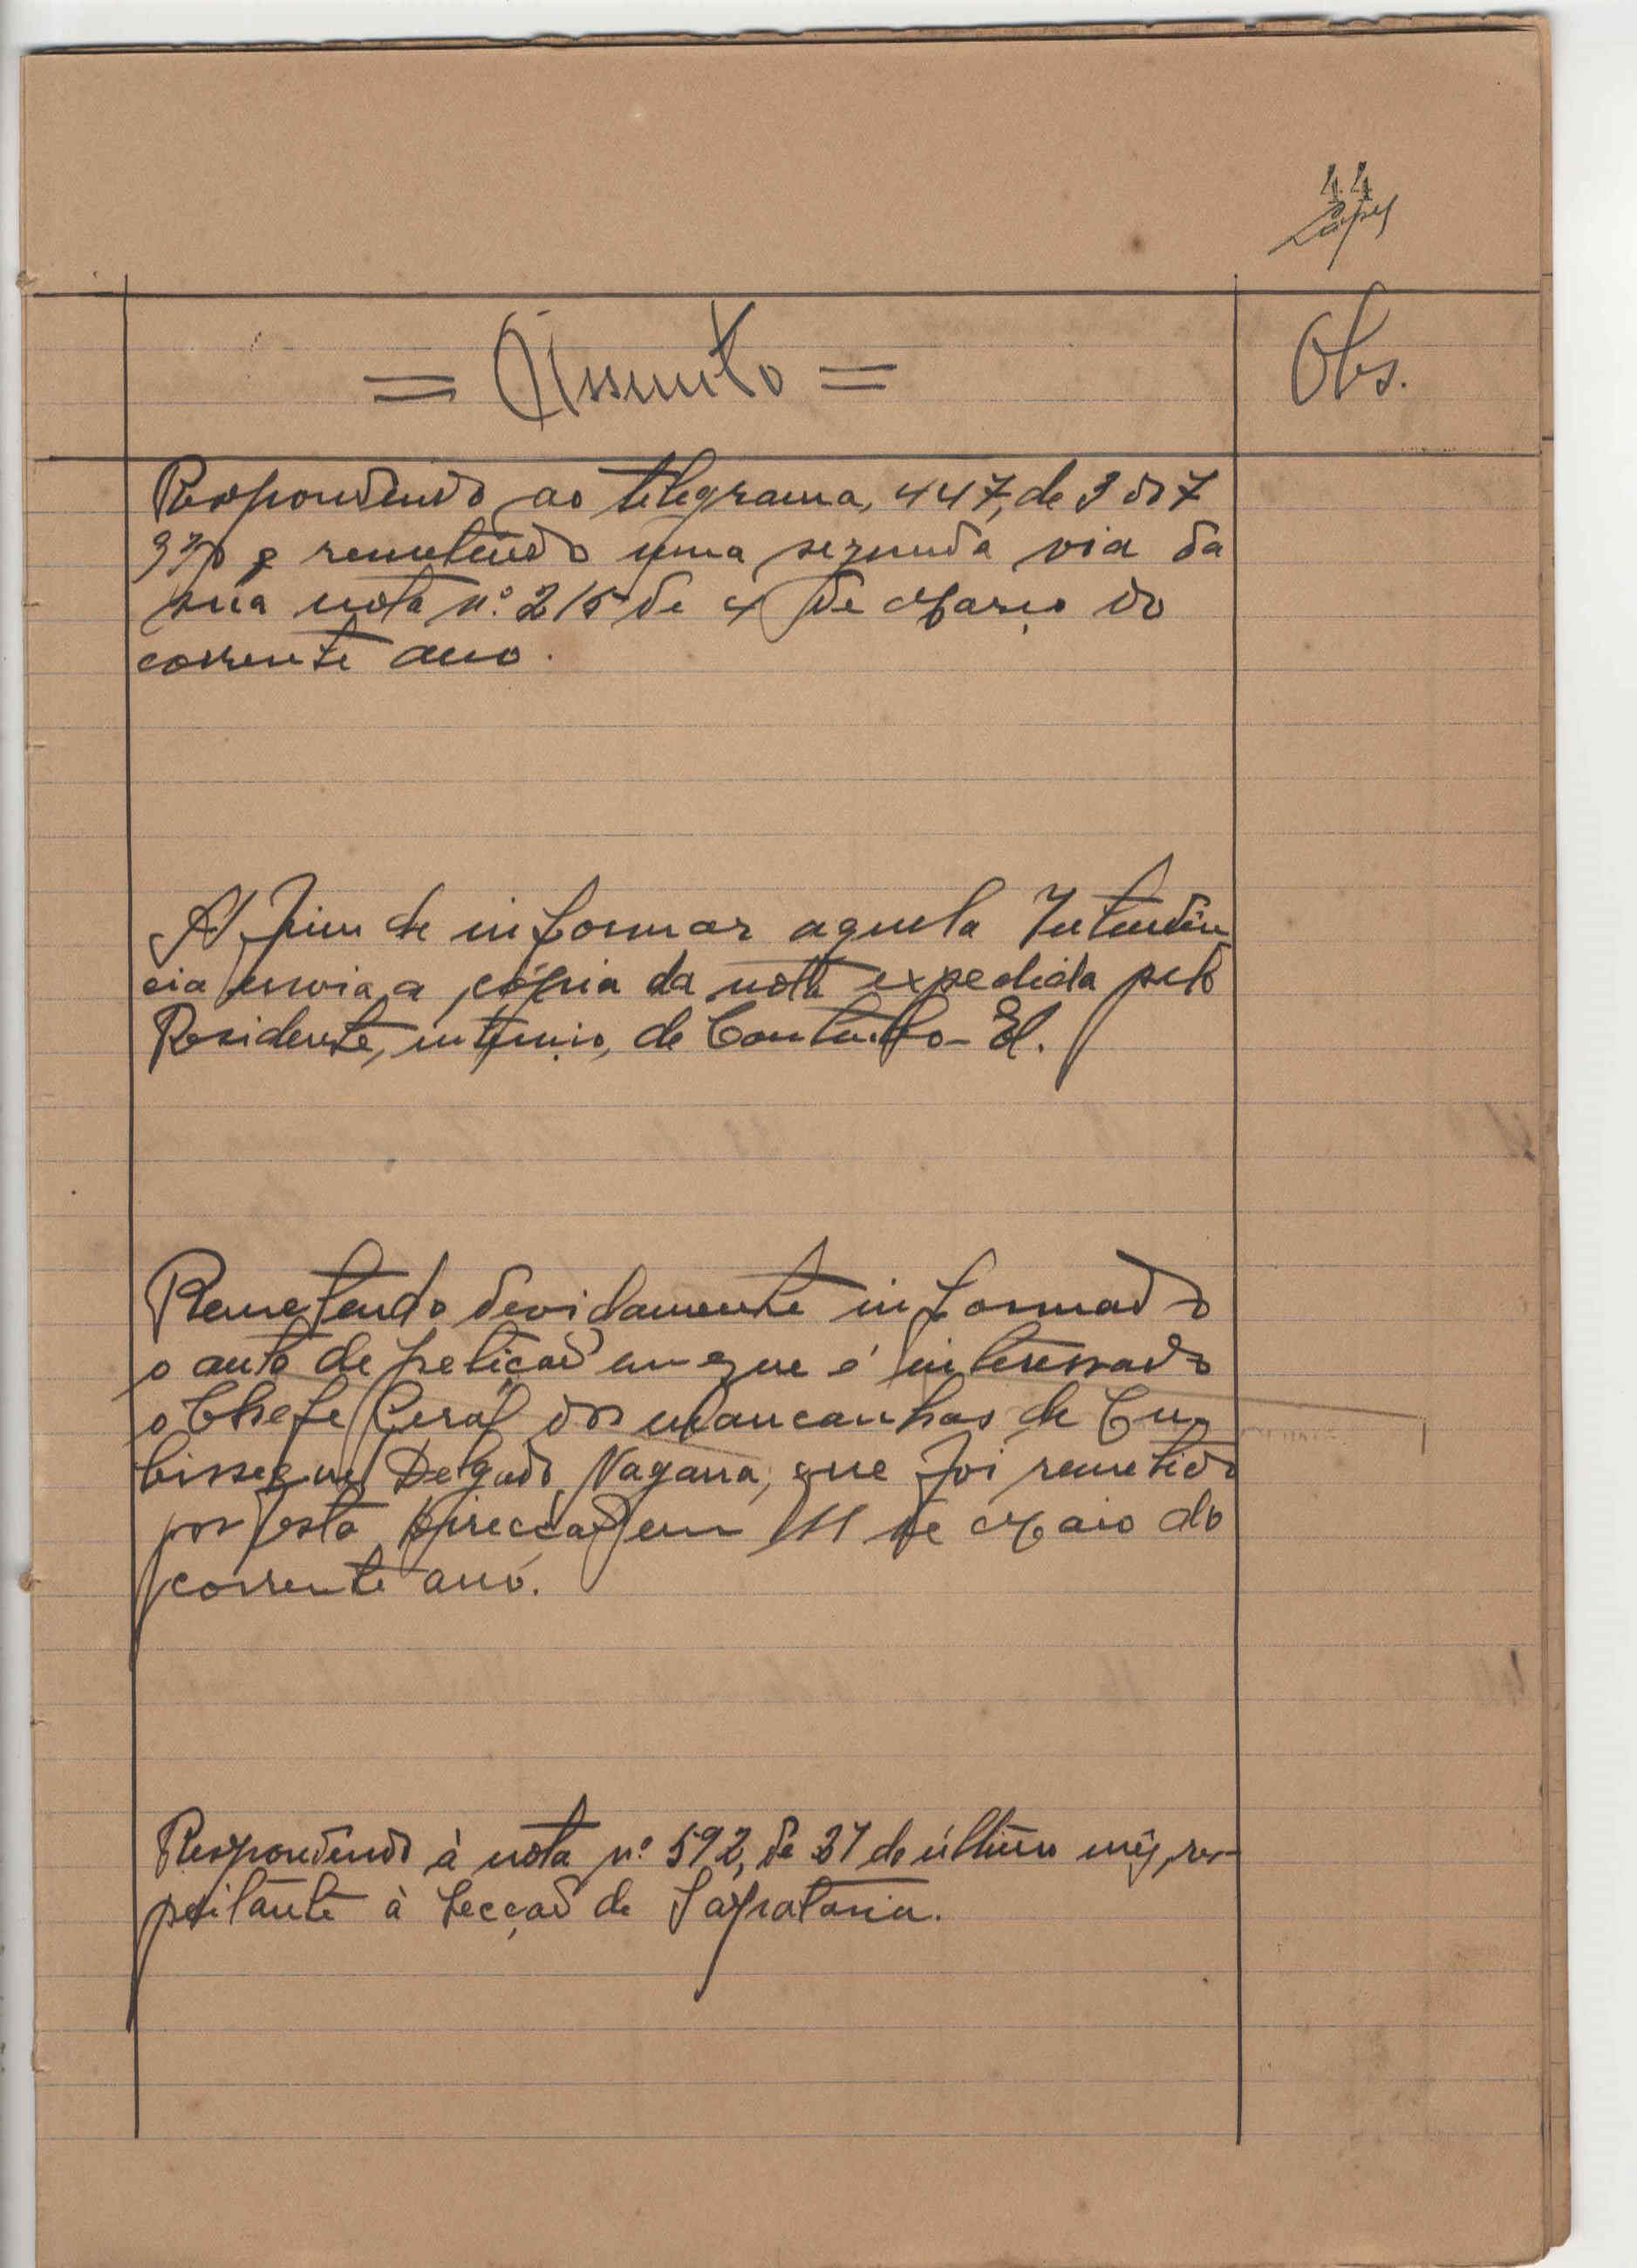 44
= Assunto =
Obs.
Respondendo ao telegrama, 447, de 3 do 7
remetendo uma segunda via da
sua nota n.º 215 de 4 de Março do
corrente ano.
A fim de informar aquela Intendên
cia envia a cópia da nota expedida pelo
Residente, interino, de Contubo-El.
Remetendo devidamente informado
o auto de petição em que é interessado
o Chefe Geral dos mancanhas de Cu-
bisseque, Delgado Nagana, que foi remetido
por esta Direcção em 11 de Maio do
corrente ano.
Respondendo à nota n.º 592, de 31 do último mês, res-
peitante à Secção de